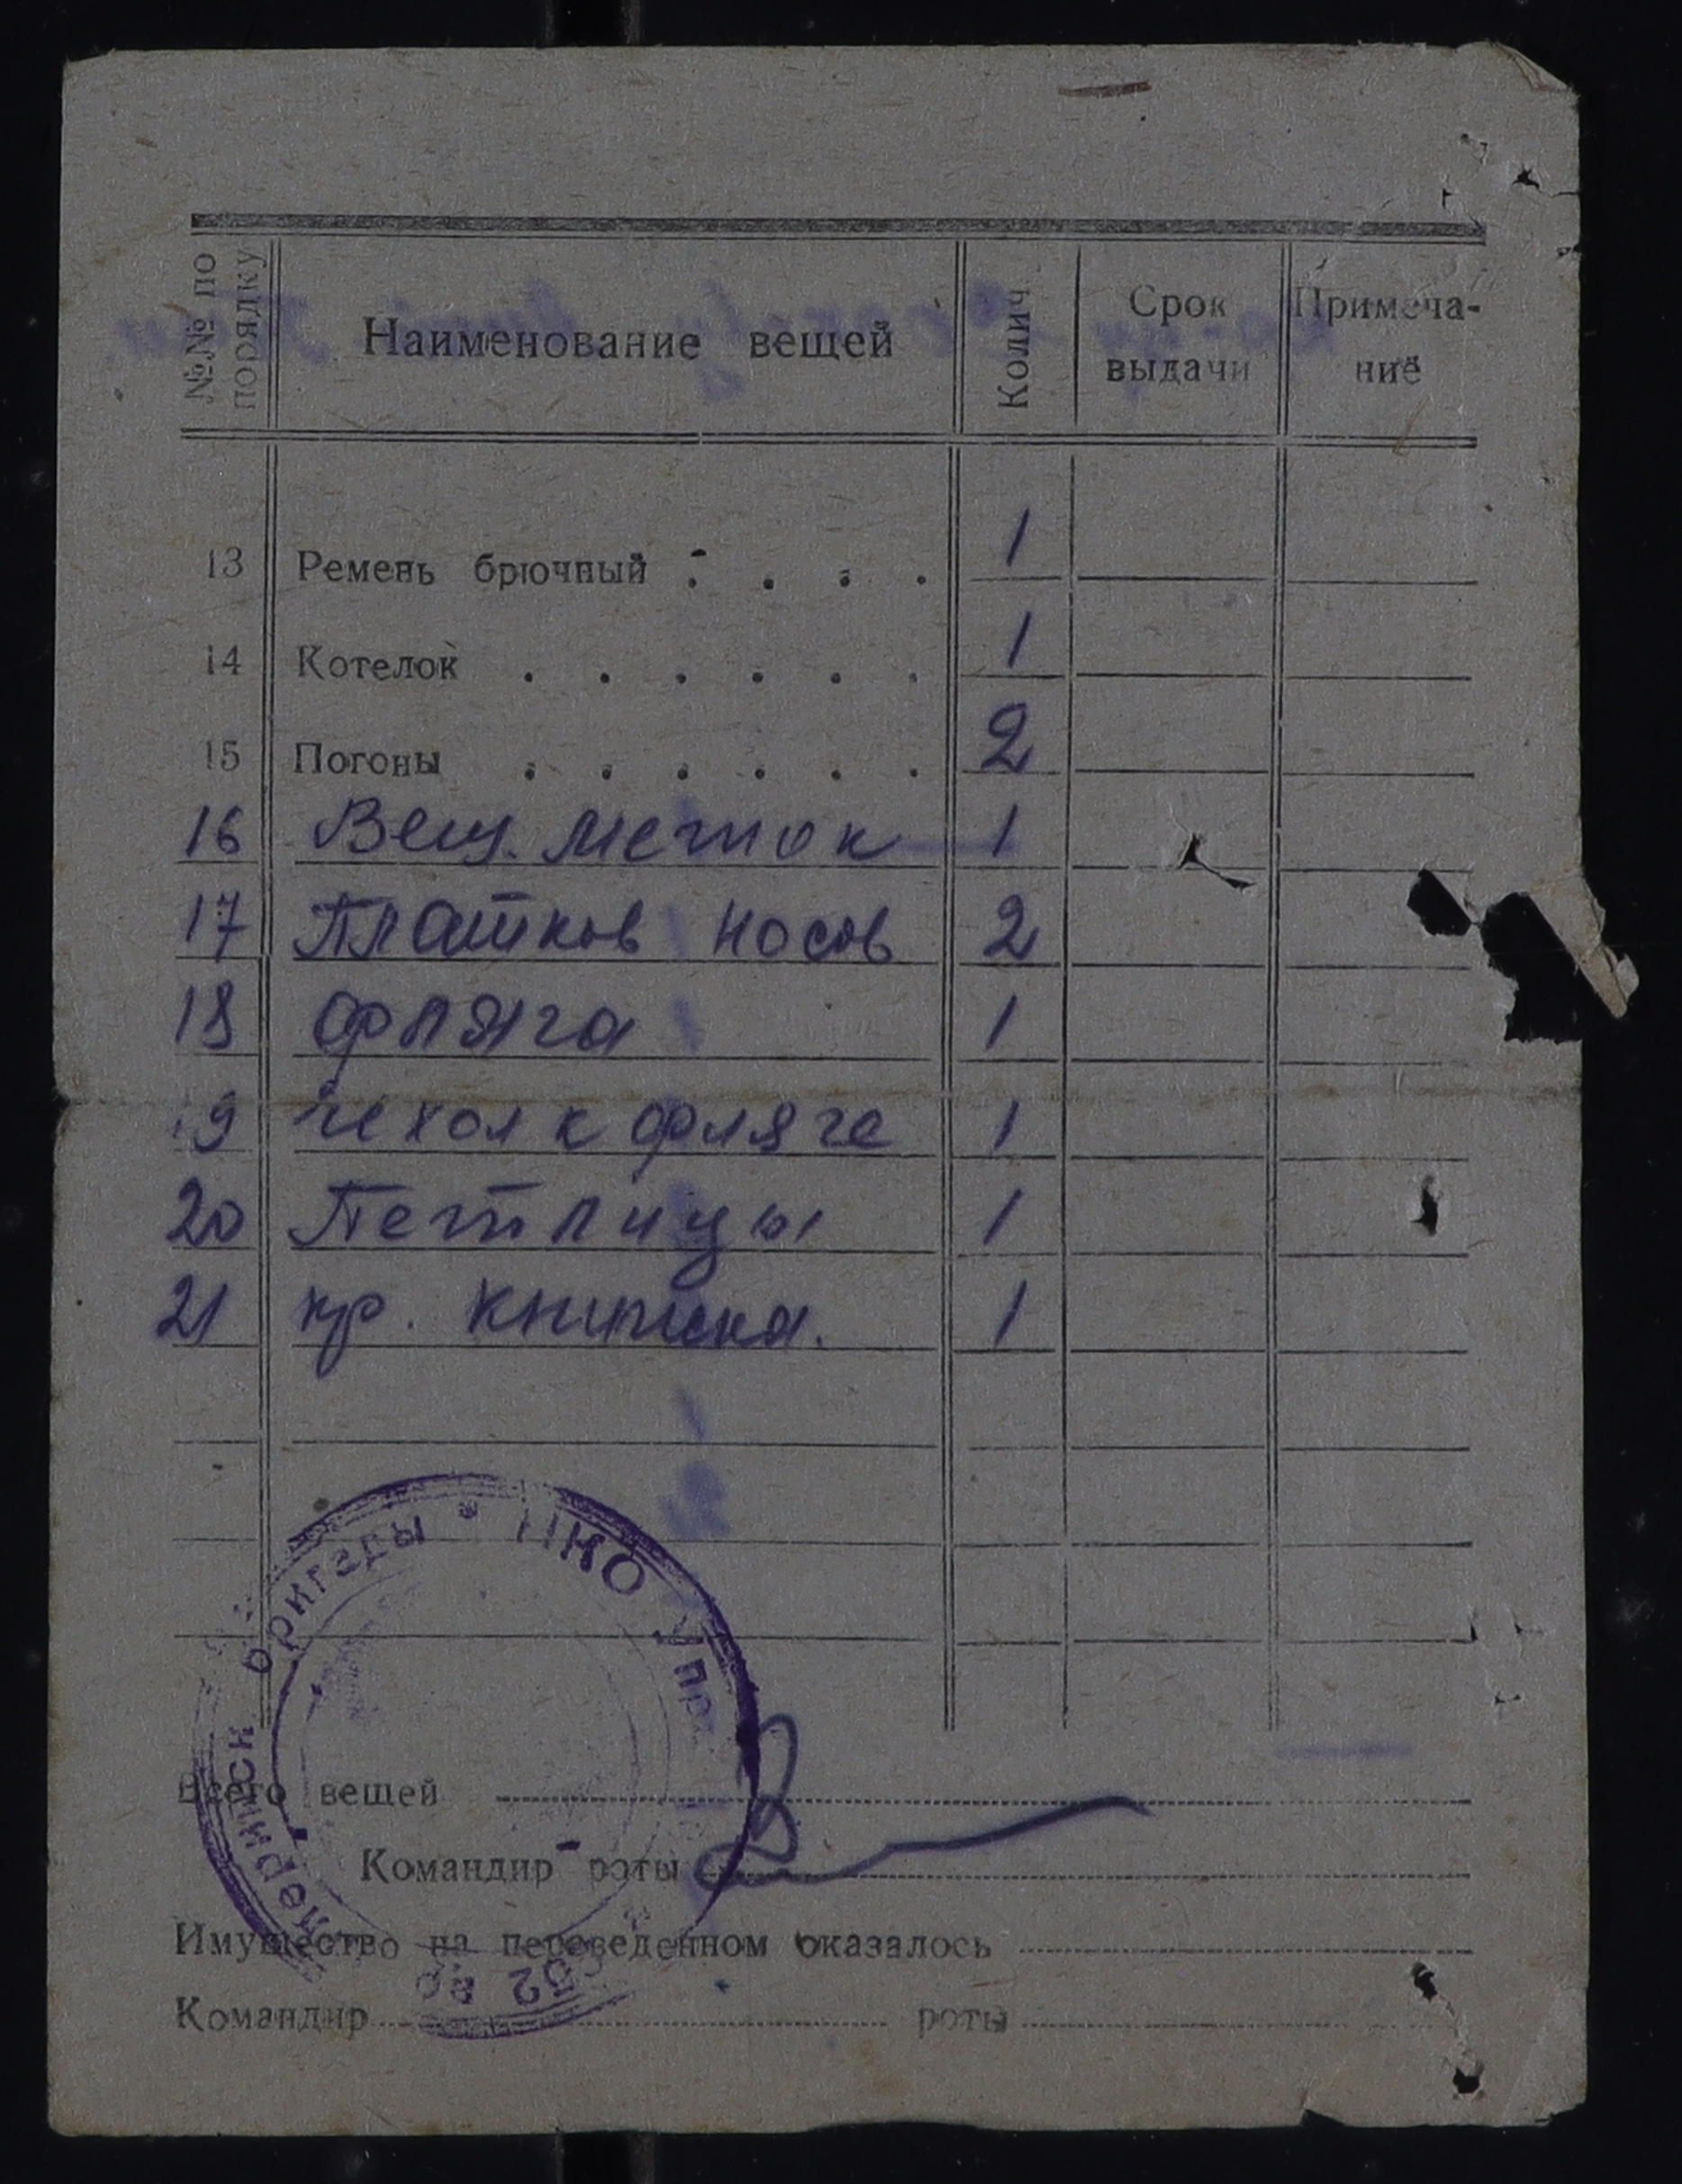 №№ по порядку Наименование вещей Колич Срок выдачи Примеча-ние
13 Ремень брючный . . . . 1
14 Котелок . . . . . . 1
15 Погоны . . . . . . 2
16 Вещ. мешок 1
17 Платков носов 2
18 фляга 1
19 чехол к фляге 1
20 Петлицы 1
21 кр. книжка. 1
Всего вещей
Командир роты
Имущество на переведенном оказалось
Командир роты
НКО Упр 52 бригады